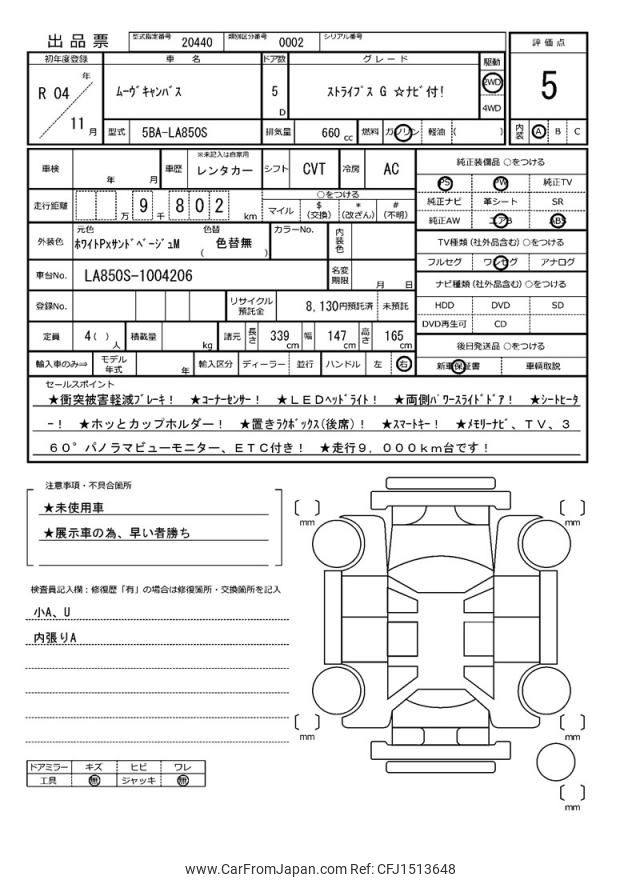 出品票 型式指定番号 20440 類別区分番号 0002 シリアル番号
評価点
5
内装 A B C
初年度登録 車名 ドア数 グレード 駆動
R 04 年 11 月
ムーヴキャンバス 5 D ストライプス G ☆ナビ付! 2WD
4WD
型式 5BA-LA850S 排気量 660 cc 燃料 ガソリン 軽油 ( )
車検 年 月 車歴 ※未記入は自家用 レンタカー シフト CVT 冷房 AC
走行距離 万 9 千 8 0 2 km
○をつける
マイル $(交換) *(改ざん) #(不明)
外装色 元色 ホワイトPxサンドベージュM 色替 ( 色替無 ) カラーNo. 内装色
車台No. LA850S-1004206 名変期限 月 日
登録No. リサイクル預託金 8,130円預託済 未預託
定員 4( ) 人 積載量 kg 諸元 長さ 339 cm 幅 147 cm 高さ 165 cm
輸入車のみ⇒ モデル年式 年 輸入区分 ディーラー 並行 ハンドル 左 右
純正装備品 ○をつける
PS PW 純正TV
純正ナビ 革シート SR
純正AW エアB ABS
TV種類(社外品含む)○をつける
フルセグ ワンセグ アナログ
ナビ種類(社外品含む)○をつける
HDD DVD SD
DVD再生可 CD
後日発送品 ○をつける
新車保証書 車輌取説
セールスポイント
★衝突被害軽減ブレーキ! ★コーナーセンサー! ★LEDヘッドライト! ★両側パワースライドドア! ★シートヒータ
ー! ★ホッとカップホルダー! ★置きラクボックス(後席)! ★スマートキー! ★メモリーナビ、TV、3
60°パノラマビューモニター、ETC付き! ★走行9,000km台です!
注意事項・不具合箇所
★未使用車
★展示車の為、早い者勝ち
検査員記入欄:修復歴「有」の場合は修復箇所・交換箇所を記入
小A、U
内張りA
ドアミラー キズ ヒビ ワレ
工具 無 ジャッキ 無
[ ] mm
[ ] mm
[ ] mm
[ ] mm
[ ] mm
www.CarFromJapan.com Ref: CFJ1513648